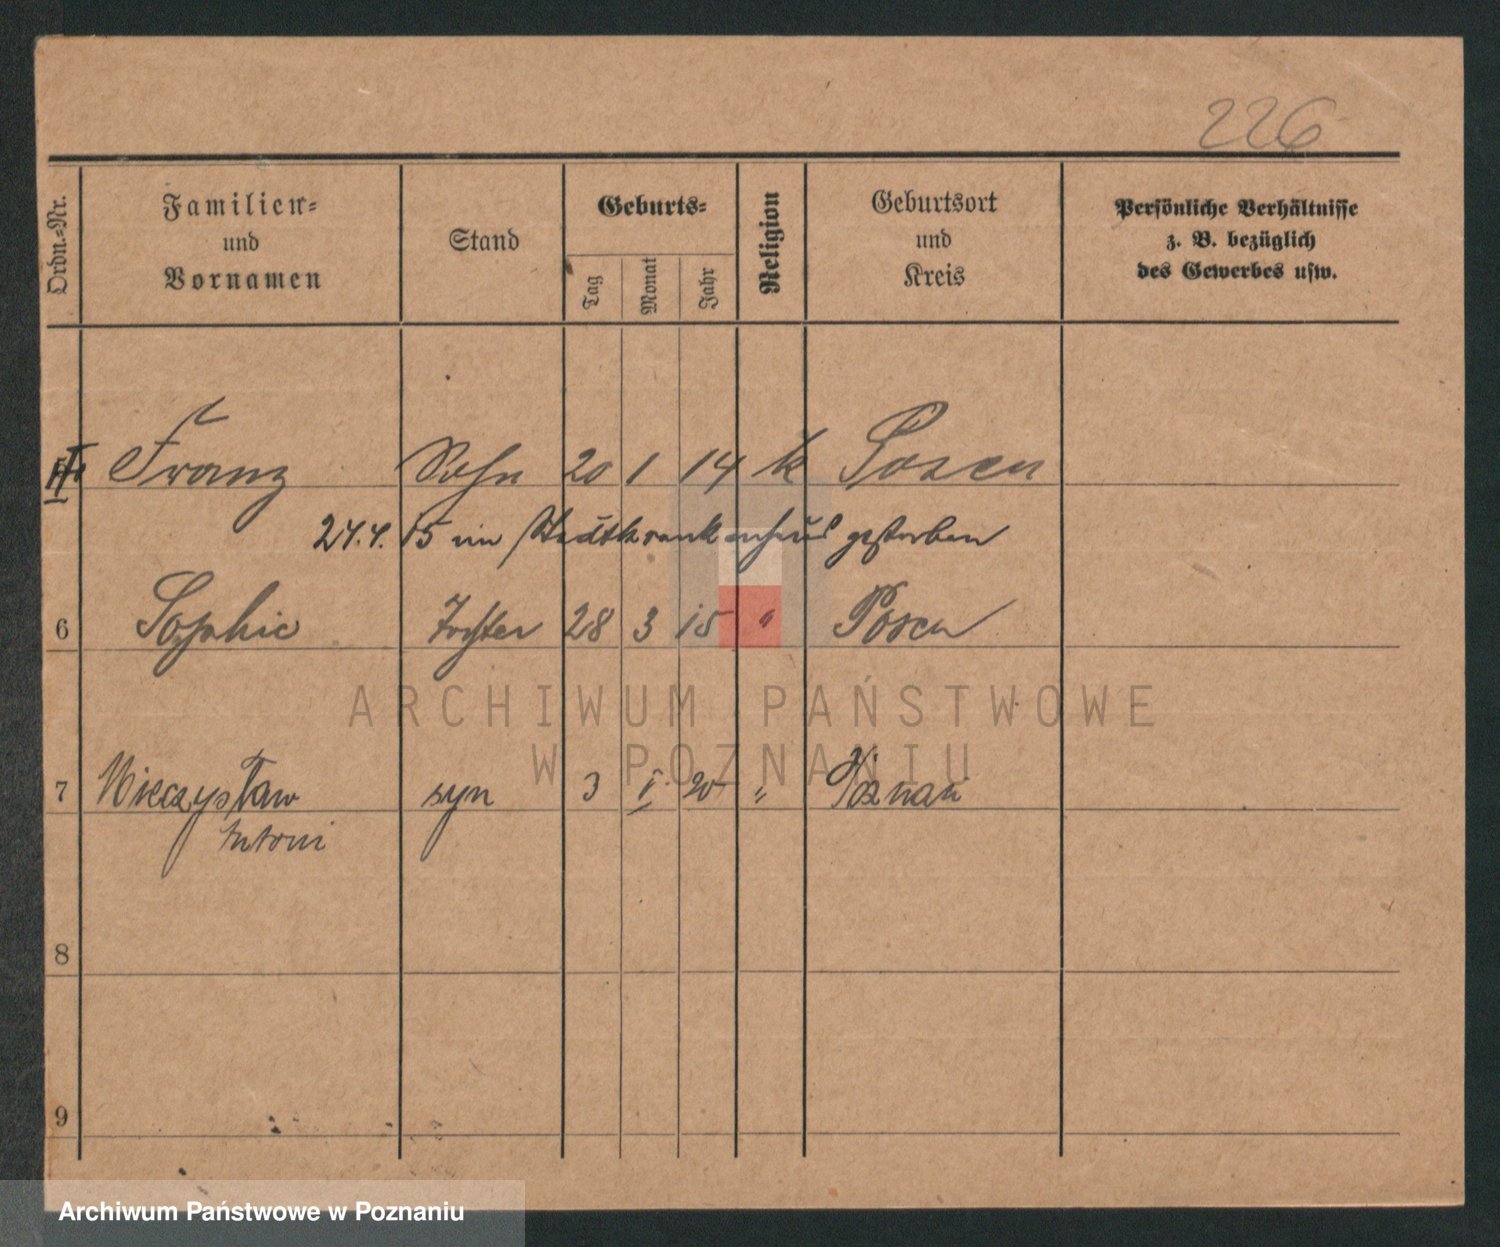 226
Ordn.=Nr.
Familien=
und
Vornamen
Stand
Geburts=
Tag
Monat
Jahr
Religion
Geburtsort
und
Kreis
Persönliche Verhältnisse
z. B. bezüglich
des Gewerbes usw.
Franz Sohn 20 1 14 k Posen
15 im Stadtkrankenhaus gestorben
6 Sophie Tochter 28 3 15 " Posen
ARCHIWUM PAŃSTWOWE
W POZNANIU
7 Mieczysław syn 3 20 " Poznań
Antoni
8
9
Archiwum Państwowe w Poznaniu